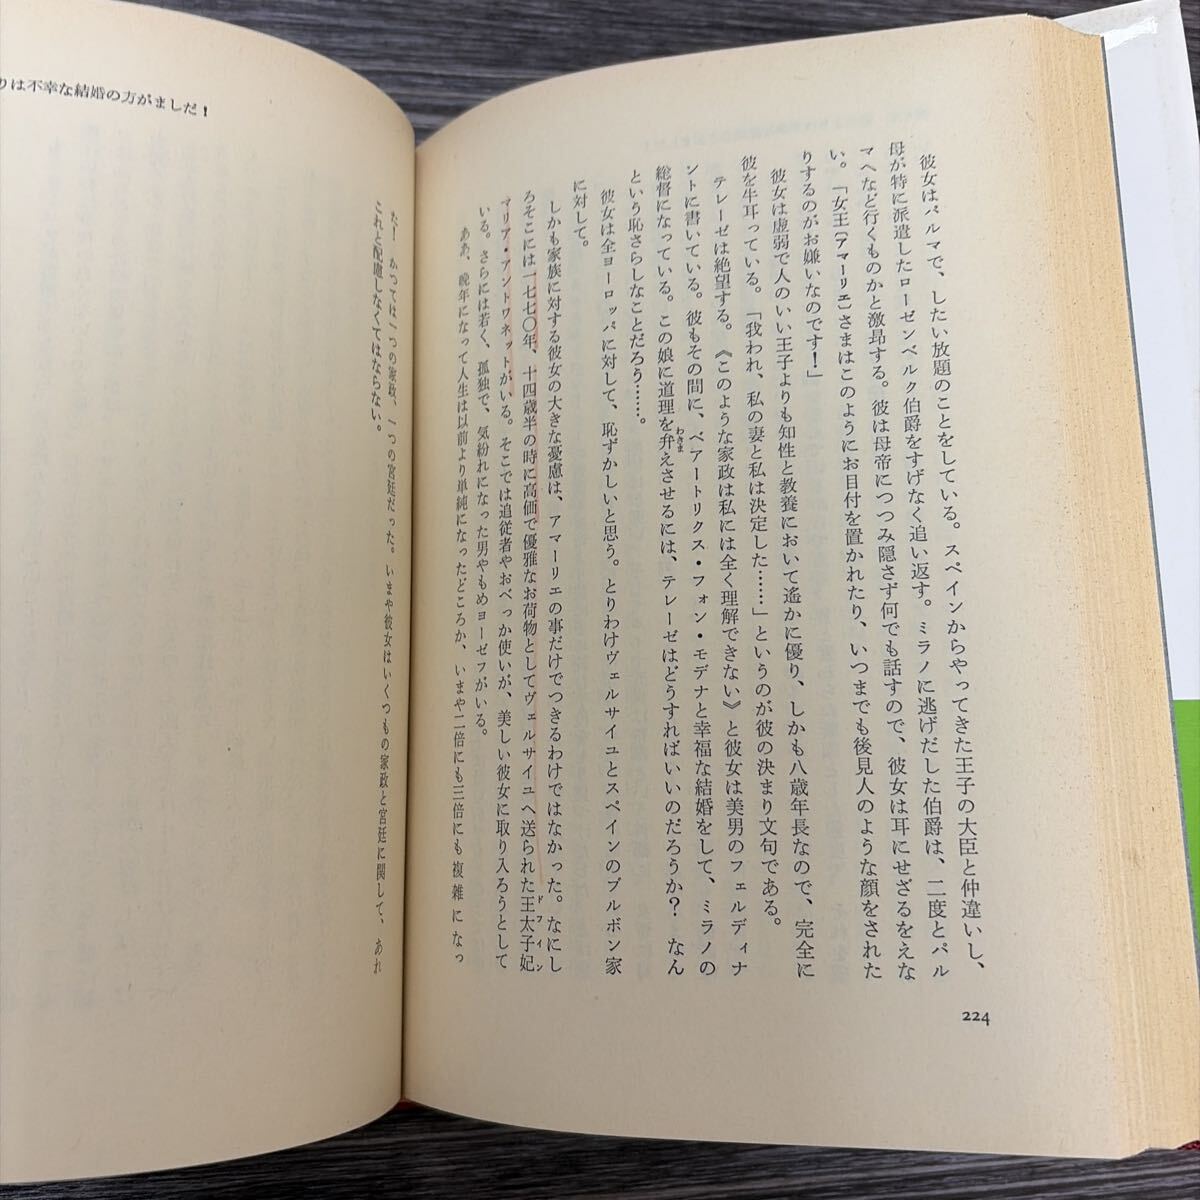 彼女はパルマで、したい放題のことをしている。スペインからやってきた王子の大臣と仲違いし、
母が特に派遣したローゼンベルク伯爵をすげなく追い返す。ミラノに逃げだした伯爵は、二度とパル
マへなど行くものかと激昂する。彼は母帝につつみ隠さず何でも話すので、彼女は耳にせざるをえな
い。「女王〔アマーリエ〕さまはこのようにお目付を置かれたり、いつまでも後見人のような顔をされた
りするのがお嫌いなのです！」
彼女は虚弱で人のいい王子よりも知性と教養において遙かに優り、しかも八歳年長なので、完全に
彼を牛耳っている。「我われ、私の妻と私は決定した……」というのが彼の決まり文句である。
テレーゼは絶望する。《このような家政は私には全く理解できない》と彼女は美男のフェルディナ
ントに書いている。彼もその間に、ベアートリクス・フォン・モデナと幸福な結婚をして、ミラノの
総督になっている。この娘に道理を弁えさせるには、テレーゼはどうすればいいのだろうか？　なん
わきま
という恥さらしなことだろう……。
彼女は全ヨーロッパに対して、恥ずかしいと思う。とりわけヴェルサイユとスペインのブルボン家
に対して。
しかも家族に対する彼女の大きな憂慮は、アマーリエの事だけでつきるわけではなかった。なにし
ろそこには一七七〇年、十四歳半の時に高価で優雅なお荷物としてヴェルサイユへ送られた王太子妃
ドフィン
マリア・アントワネットがいる。そこでは追従者やおべっか使いが、美しい彼女に取り入ろうとして
いる。さらには若く、孤独で、気紛れになった男やもめヨーゼフがいる。
ああ、晩年になって人生は以前より単純になったどころか、いまや二倍にも三倍にも複雑になっ
224
た！　かつては一つの家政、一つの宮廷だった。いまや彼女はいくつもの家政と宮廷に関して、あれ
これと配慮しなくてはならない。
りは不幸な結婚の方がましだ！